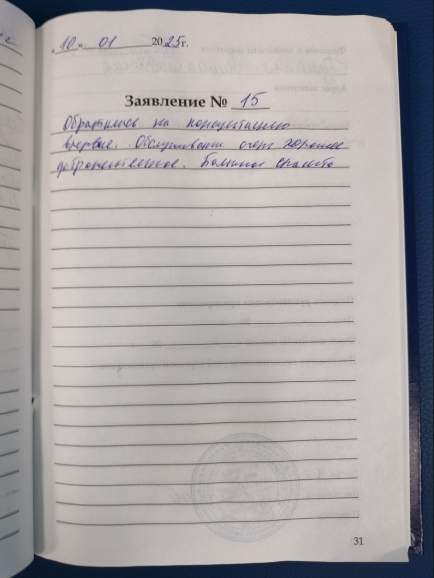 „10" 01 2025г.
Заявление № 15
Обратились на консультацию
впервые. Обслуживание очень хорошее
доброжелательное. Большое спасибо
31